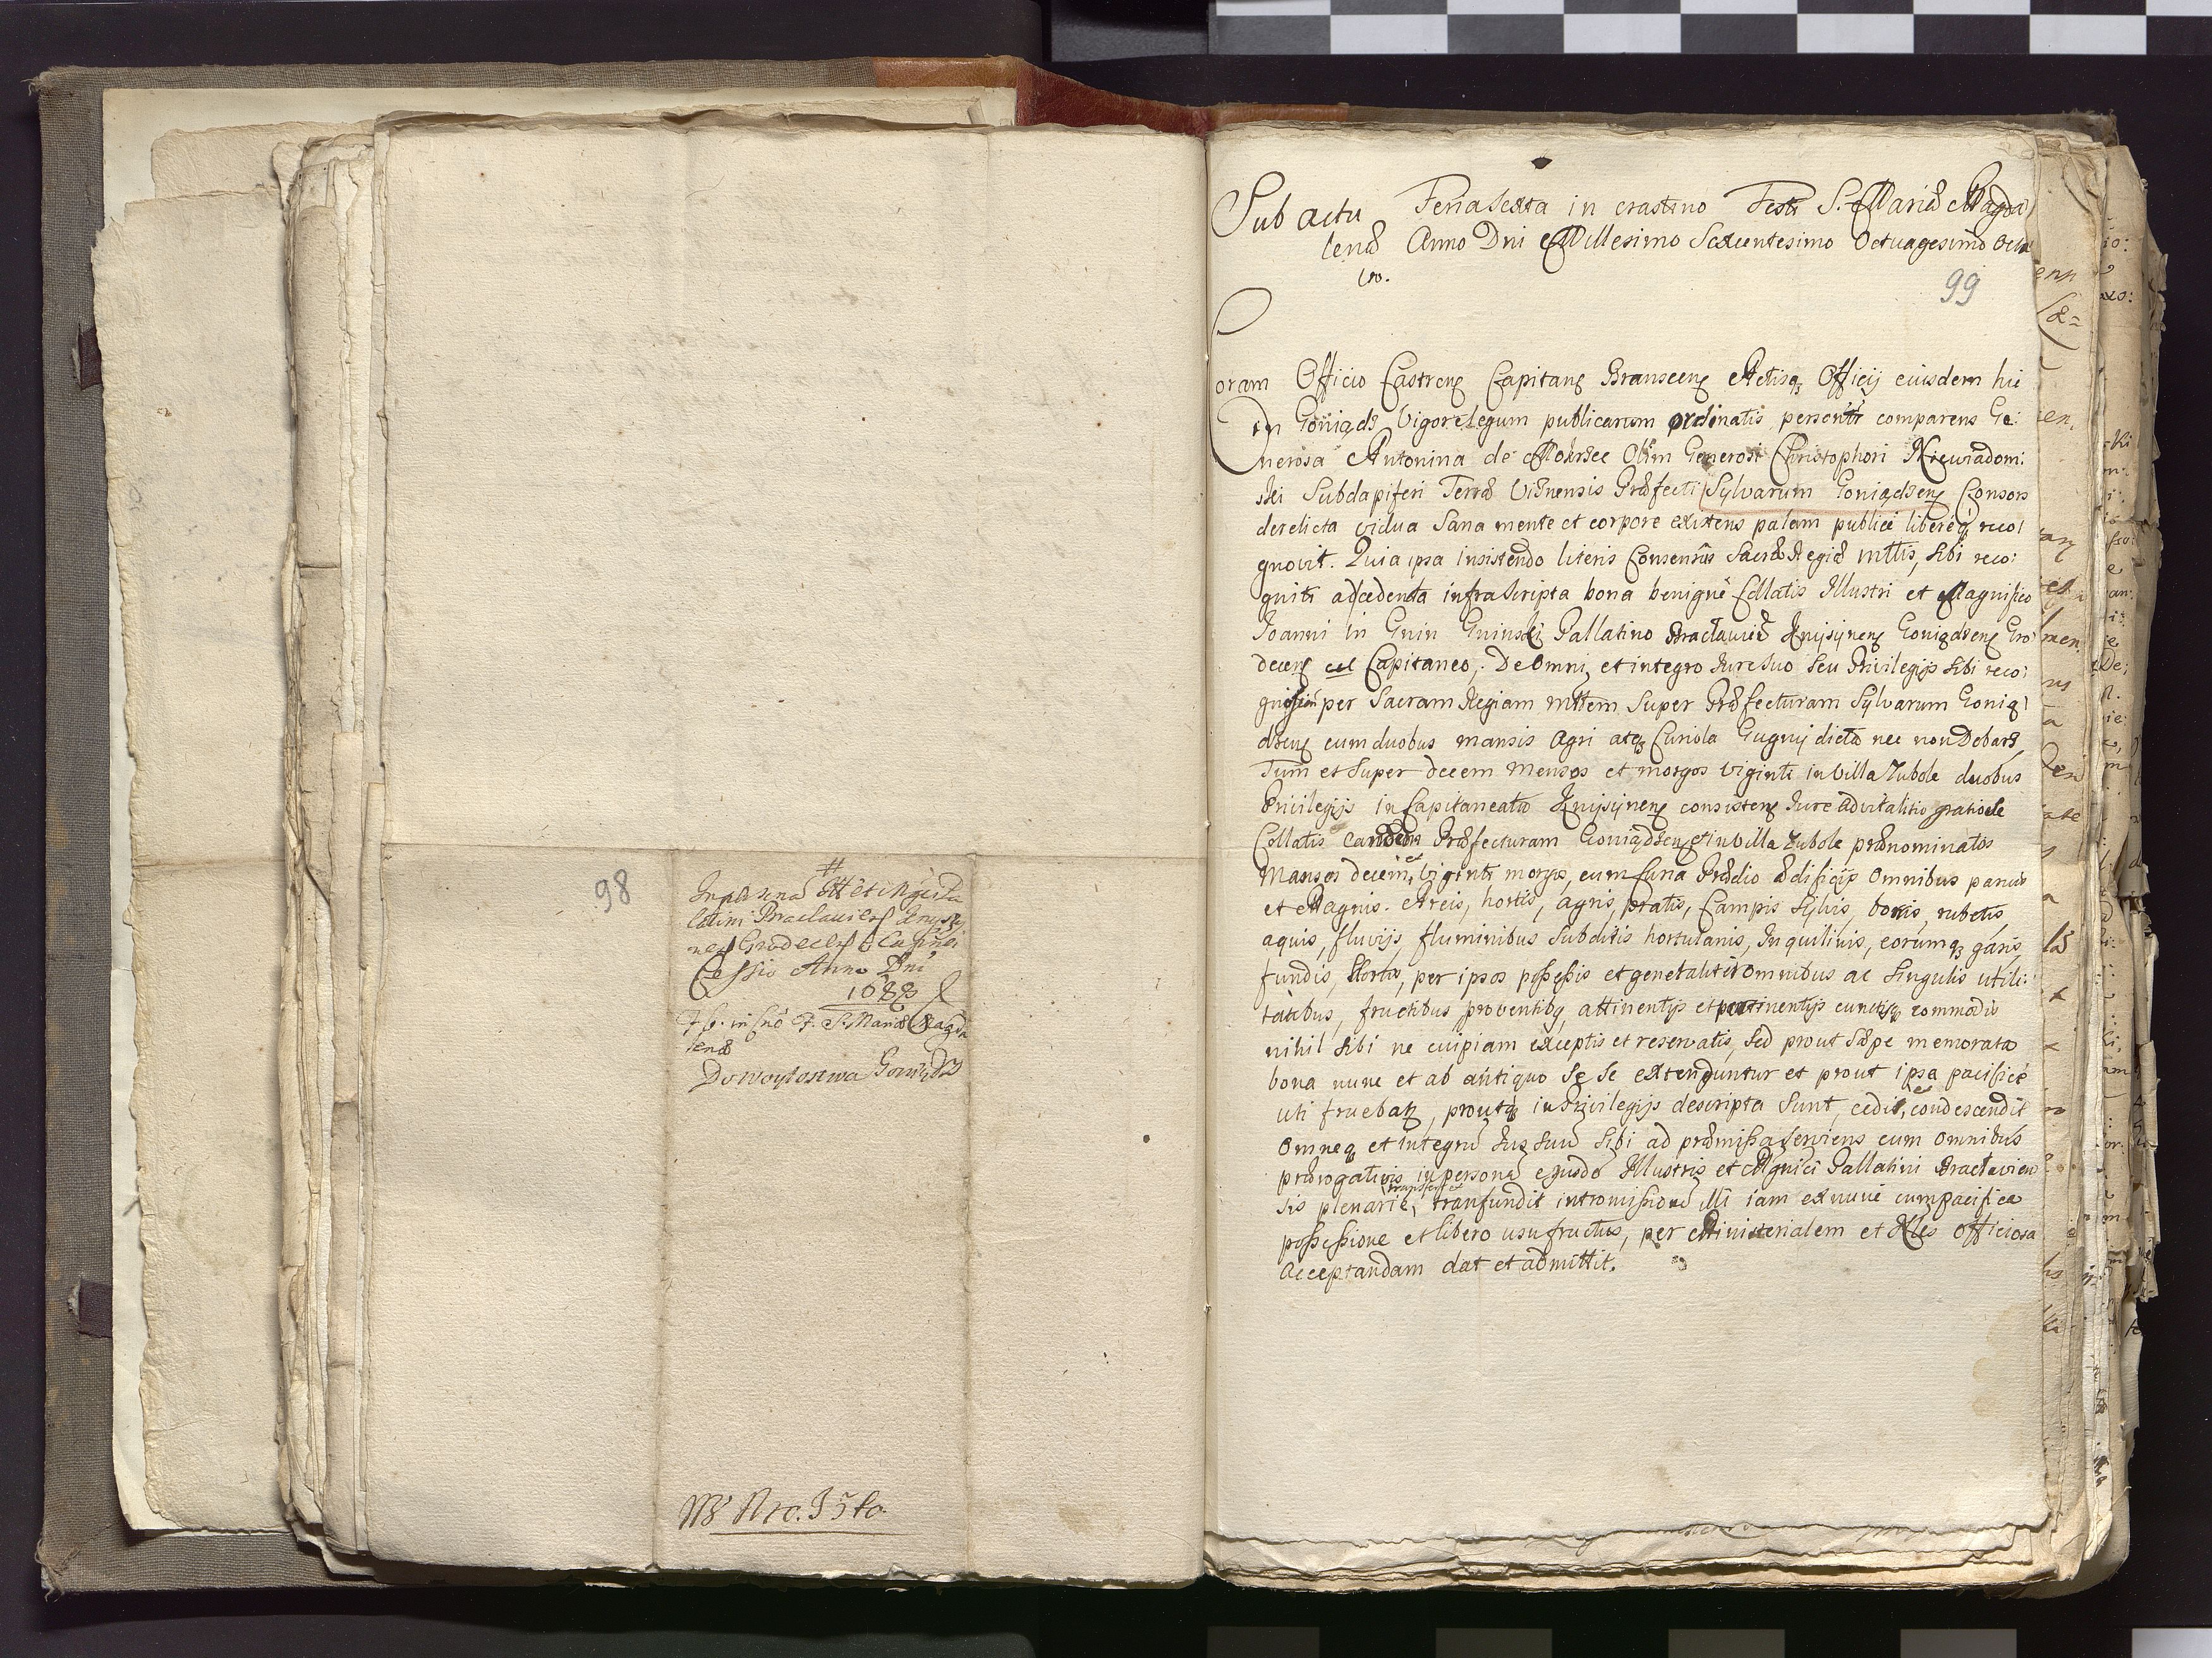 98
In personã Ill et Mgci Pa
latini Braclavien Knyszy
nen Grodecen & Capnei
Cessio Anno Dni
1688
f. 6. in cno F. S. Mariæ Magda
lenæ
Do Woytostwa Goniądz
Nro. 35to.
Sub actu Feria Sexta in crastino Festi S. Mariæ Magda
lenæ Anno Dni Millesimo Sexcentesimo Octuagesimo Octa
vo.
99
Coram Officio Castren Capitan Branscen Actisq Officij eiusdem hic
in Goniądz vigore Legum publicarum ordinatis personłr comparens Ge:
nerosa Antonina de Mokrsce Olim Generosi Christophori Niewiadom:
ski Subdapiferi Terræ Visnensis Præfecti Sylvarum Goniądzen Consors
derelicta vidua Sana mente et corpore existens palam publicé libereq reco:
gnovit. Quia ipsa insistendo literis Consensûs Sacræ Regiæ mttis, sibi reco:
gniti ad cedenda infra Scripta bona benignè Collatis Illustri et Magnifico
Joanni in Gnin Gninski Pallatino Braclaviæ Knyszynen Goniądzen Gro
decen Capitaneo, De omni et integro Jure Suo Seu Privilegijs sibi reco:
per Sacram Regiam mttem Super Præfecturam Sylvarum Gonią:
dzen cum duobus mansis Agri atq Curiola Gugny dicta nec non Debarz,
Tum et super decem Mensos et morgos viginti in Villa Zubole duobus
Privilegijs in Capitaneatu Knyszynen consisten Jure advitalitio gratiose
Collatis eandem Præfecturam Goniądzen et in Villa Zubole prænominatos
Mansos decem, et viginti morgos, cum Curia Prædio ædificijs Omnibus parvis
et Magnis. Areis, hortis, agris, pratis, Campis Sylvis, boris, rubetis,
aquis, fluvijs, fluminibus Subditis hortulanis, Inquilinis, eorumq
fundis, per ipsos possessis et generaliter omnibus ac singulis utili:
tatibus, fructibus, proventibq, attinentijs et pertinentijs cunctisq commodis
nihil sibi ne cuipiam exceptis et reservatis, sed prout sæpe memorata
bona nunc et ab antiquo Se se extenduntur et prout ipsa pacificè
uti fruebatz, proutq in Privilegijs descripta Sunt, cedit, et condescendit
Omneq et integrũ Jus Suũ Sibi ad præmissa serviens cum omnibus
prærogativis in personã ejusdẽ Illustris et Mgnici Pallatini Braclavien
transfert et
sis plenariè, tranfundit intromissionẽ illi iam ex nunc cum pacifica
possessione et libero usufructus, per Ministerialem et Nles officiosa
acceptandam dat et admittit.